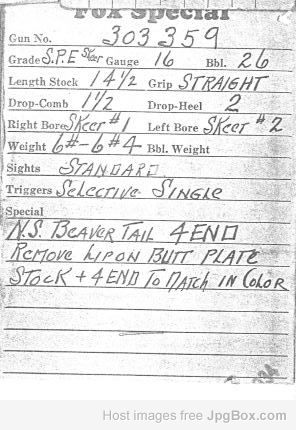 Fox Special
Gun No. 303359
Grade S.P.E Skeet Gauge 16 Bbl. 26
Length Stock 14 1/2 Grip STRAIGHT
Drop-Comb 1 1/2 Drop-Heel 2
Right Bore Skeet #1 Left Bore Skeet #2
Weight 6#-6#4 Bbl. Weight
Sights STANDARD
Triggers Selective Single
Special
N.S. BEAVER TAIL 4END
REMOVE LIP ON BUTT PLATE
STOCK + 4END TO MATCH IN COLOR
Host images free JpgBox.com